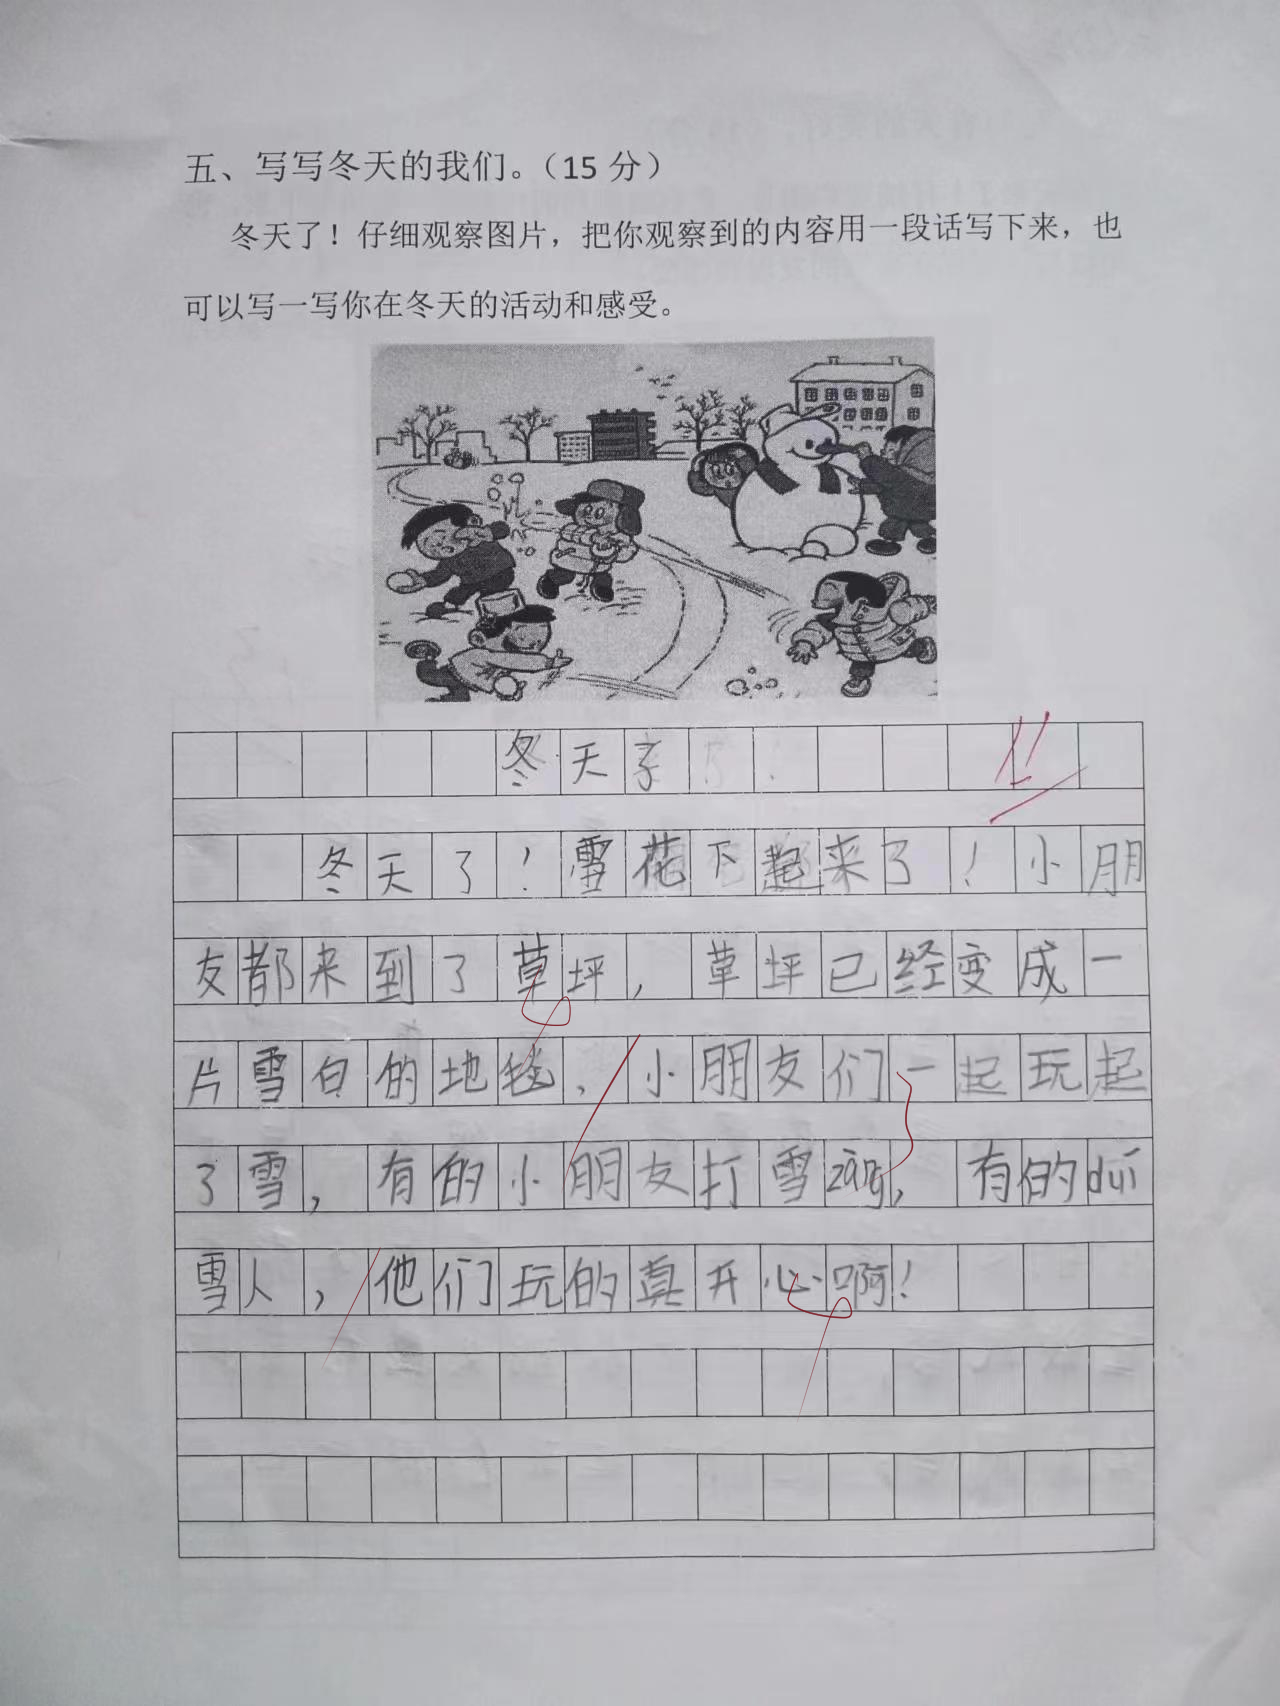 五、写写冬天的我们。（15 分）
冬天了！仔细观察图片，把你观察到的内容用一段话写下来，也
可以写一写你在冬天的活动和感受。
冬天
11
冬天了！雪花下起来了！小朋
友都来到了草坪，草坪已经变成一
片雪白的地毯，小朋友们一起玩起
了雪，有的小朋友打雪zàng，有的duī
雪人，他们玩的真开心啊！